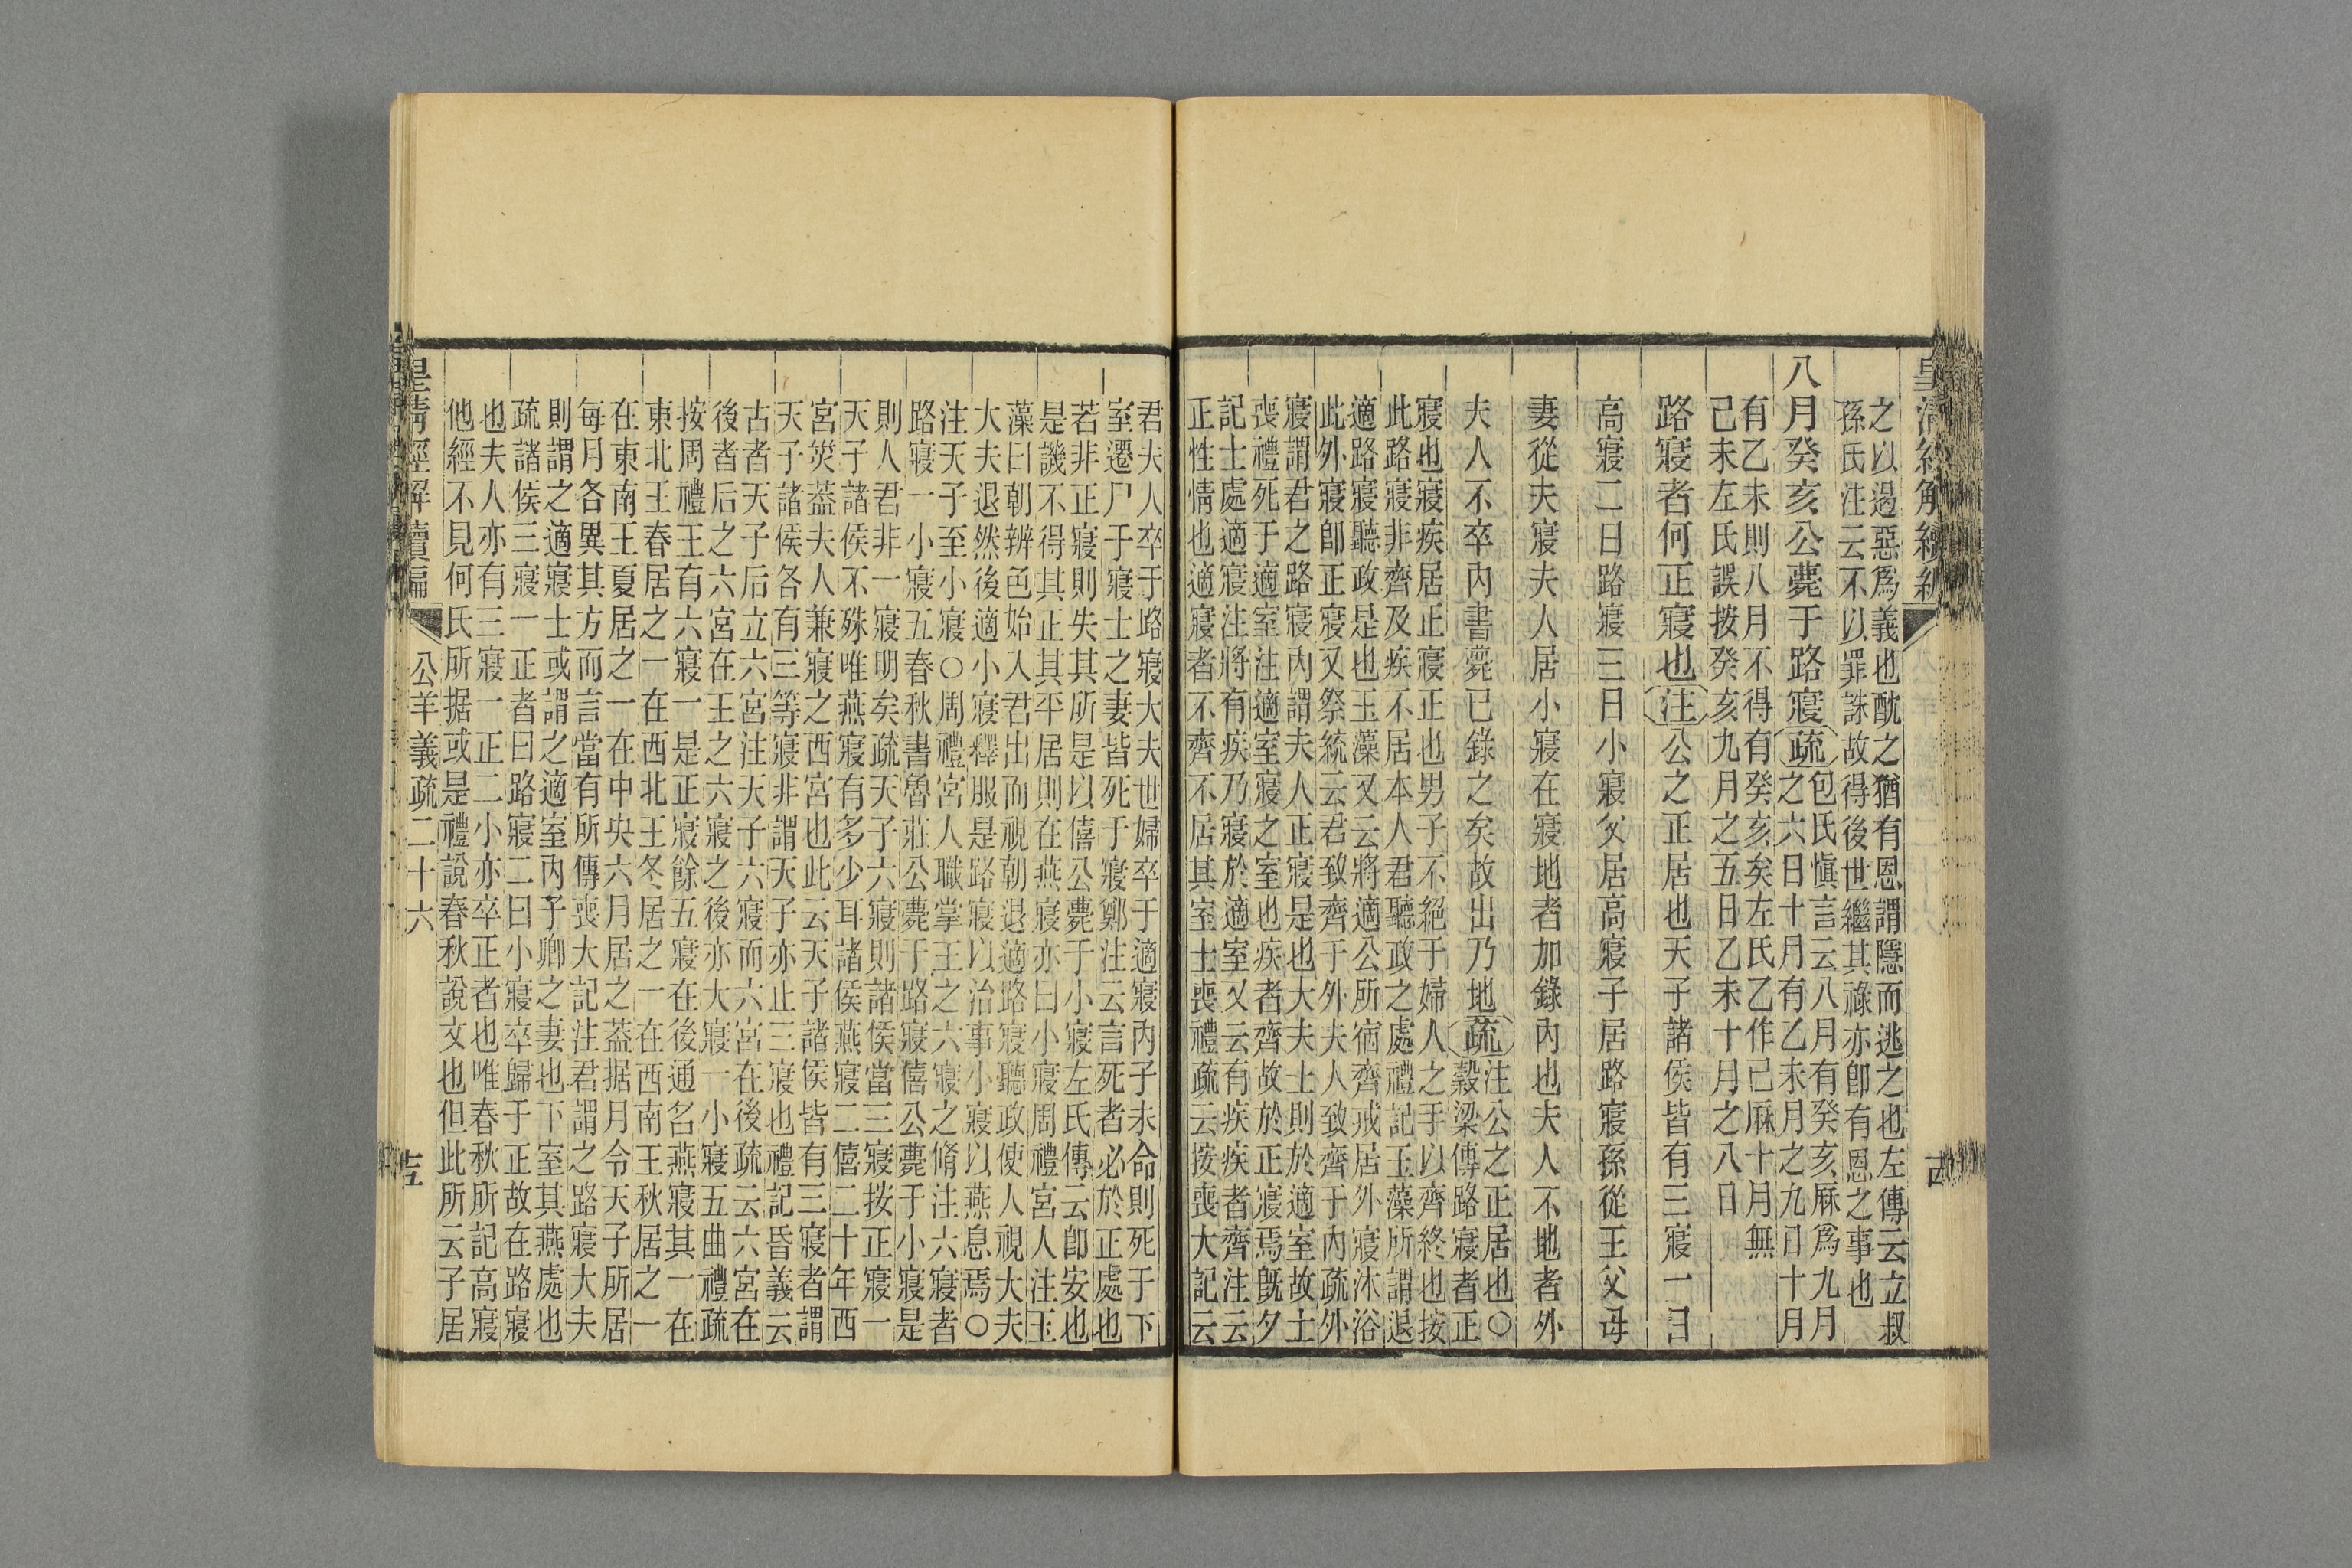 皇清經解續編
之以遏惡爲義也酖之猶有恩謂隱而逃之也左傳云立叔
孫氏注云不以罪誅故得後世繼其祿亦卽有恩之事也
八月癸亥公薨于路寢疏
包氏愼言云八月有癸亥厤爲九月
之六日十月有乙未月之九日十月
有乙未則八月不得有癸亥矣左氏乙作己厤十月無
己未左氏誤按癸亥九月之五日乙未十月之八日
路寢者何正寢也注公之正居也天子諸侯皆有三寢一曰
高寢二曰路寢三曰小寢父居高寢子居路寢孫從王父母
妻從夫寢夫人居小寢在寢地者加錄內也夫人不地者外
夫人不卒內書薨已錄之矣故出乃地疏
注公之正居也○
穀梁傳路寢者正
寢也寢疾居正寢正也男子不絕于婦人之手以齊終也按
此路寢非齊及疾不居本人君聽政之處禮記玉藻所謂退
適路寢聽政是也玉藻又云將適公所宿齊戒居外寢沐浴
此外寢卽正寢又祭統云君致齊于外夫人致齊于內疏外
寢謂君之路寢內謂夫人正寢是也大夫士則於適室故士
喪禮死于適室注適室寢之室也疾者齊故於正寢焉旣夕
記士處適寢注將有疾乃寢於適室又云有疾疾者齊注云
正性情也適寢者不齊不居其室士喪禮疏云按喪大記云
君夫人卒于路寢大夫世婦卒于適寢內子未命則死于下
室遷尸于寢士之妻皆死于寢鄭注云言死者必於正處也
若非正寢則失其所是以僖公薨于小寢左氏傳云卽安也
是譏不得其正其平居則在燕寢亦曰小寢周禮宮人注玉
藻曰朝辨色始入君出而視朝退適路寢聽政使人視大夫
大夫退然後適小寢釋服是路寢以治事小寢以燕息焉○
注天子至小寢○周禮宮人職掌王之六寢之脩注六寢者
路寢一小寢五春秋書魯莊公薨于路寢僖公薨于小寢是
則人君非一寢明矣疏天子六寢則諸侯當三寢按正寢一
天子諸侯不殊唯燕寢有多少耳諸侯燕寢二僖二十年西
宮災葢夫人兼寢之西宮也此云天子諸侯皆有三寢者謂
天子諸侯各有三等寢非謂天子亦止三寢也禮記昏義云
古者天子后立六宮注天子六寢而六宮在後疏云六宮在
後者后之六宮在王之六寢之後亦大寢一小寢五曲禮疏
按周禮王有六寢一是正寢餘五寢在後通名燕寢其一在
東北王春居之一在西北王冬居之一在西南王秋居之一
在東南王夏居之一在中央六月居之葢据月令天子所居
每月各異其方而言當有所傳喪大記注君謂之路寢大夫
則謂之適寢士或謂之適室內子卿之妻也下室其燕處也
疏諸侯三寢一正者曰路寢二曰小寢卒歸于正故在路寢
也夫人亦有三寢一正二小亦卒正者也唯春秋所記高寢
他經不見何氏所据或是禮說春秋說文也但此所云子居
皇清經解續編
公羊義疏二十六